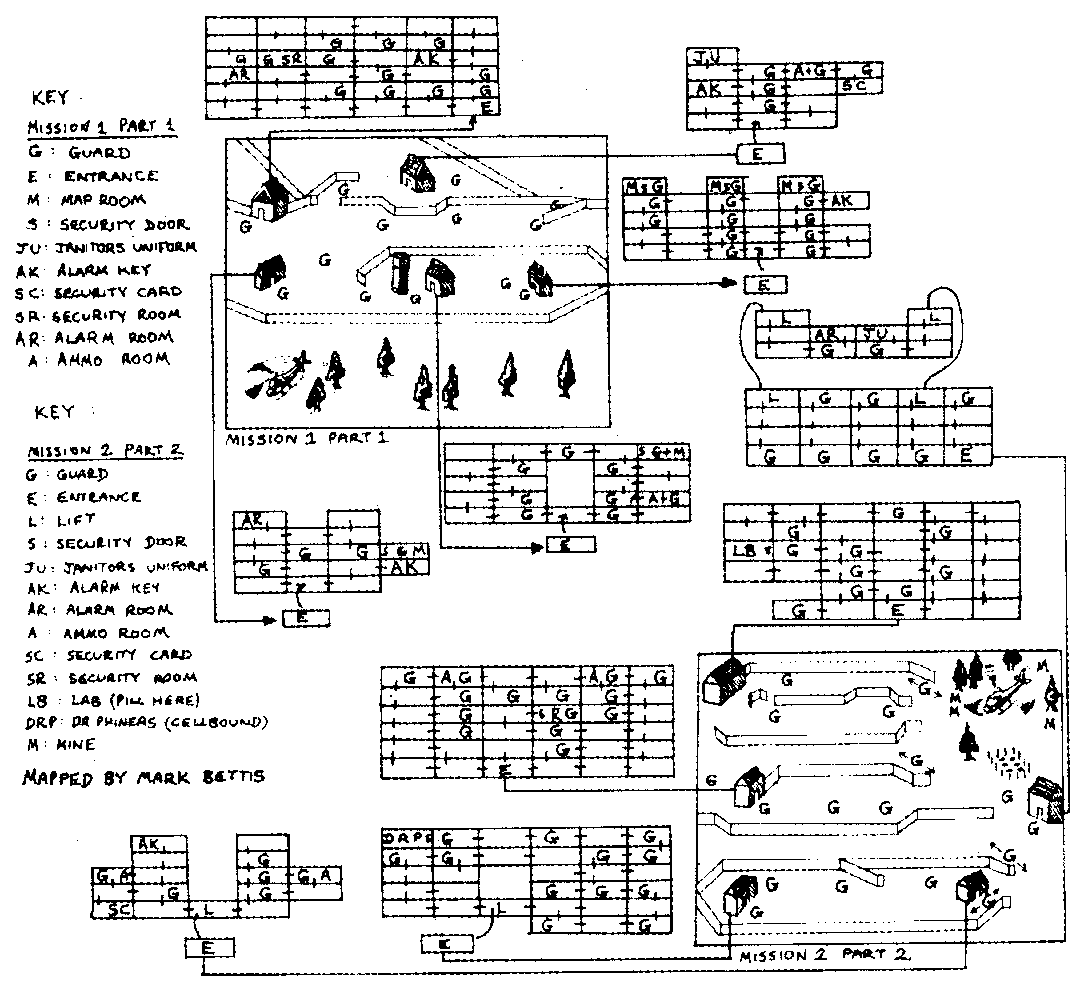 KEY :
MISSION 1 PART 1
G : GUARD
E : ENTRANCE
M : MAP ROOM
S : SECURITY DOOR
JU : JANITORS UNIFORM
AK : ALARM KEY
SC : SECURITY CARD
SR : SECURITY ROOM
AR : ALARM ROOM
A : AMMO ROOM
KEY :
MISSION 2 PART 2
G : GUARD
E : ENTRANCE
L : LIFT
S : SECURITY DOOR
JU : JANITORS UNIFORM
AK : ALARM KEY
AR : ALARM ROOM
A : AMMO ROOM
SC : SECURITY CARD
SR : SECURITY ROOM
LB : LAB (PILL HERE)
DRP : DR PHINEAS (CELLBOUND)
M : MINE
MAPPED BY MARK BETTIS
G G G
G G SR G AK
AR G G
G G G G
E
JU
G A+G G
AK G SC
G
E
M S G M S G M S G
G G G AK
G G
G G
G G
E
G
G
G
G G G G
G
G
G G G G G
MISSION 1 PART 1
L L
AR JU
G G
L G G L G
G G G G E
G S G+M
G G
G G A+G
G G
E
AR
G G S G M
G AK
E
G
G G
LB S G G
G G
G G
G E
G A G A G G
G G G
G S R G G
G G
G
E
DRP G G G
G G G G
G G G
G G
L
E
AK
G
G A G G A
G G
SC L
E
G G M
M G
M M
G G
G
G
G G G G
G
G
G G G
G G
MISSION 2 PART 2